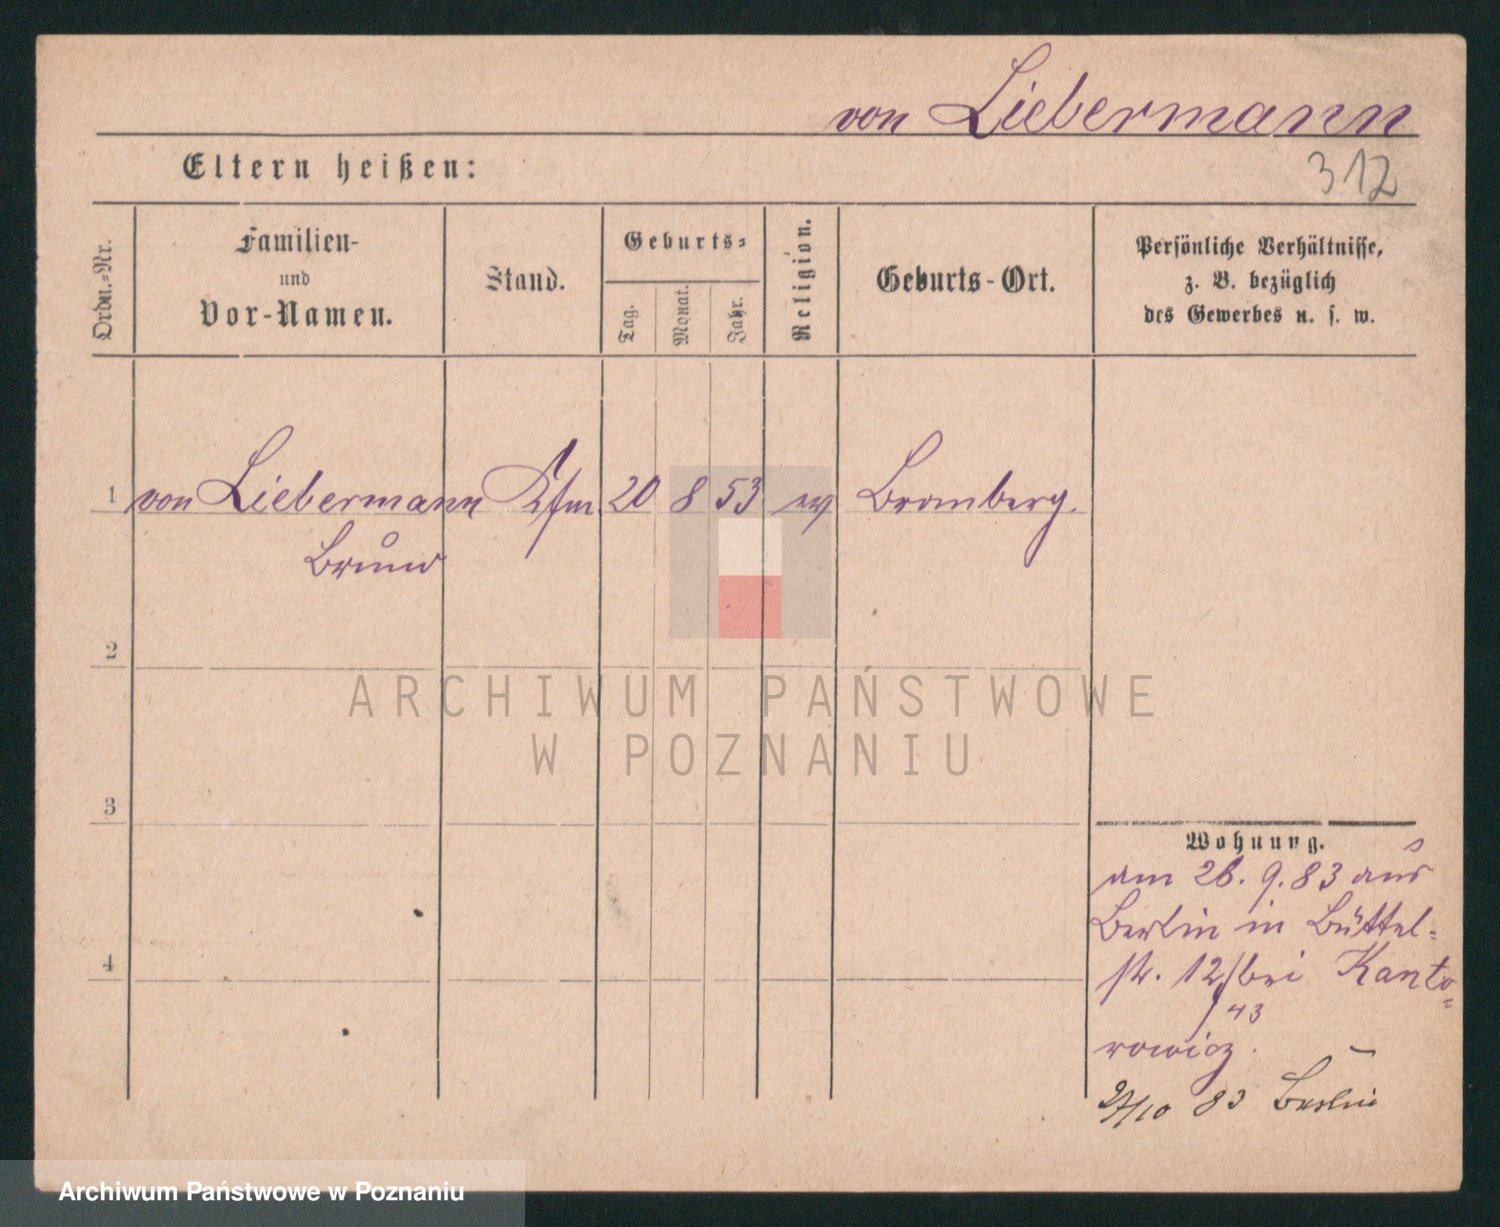 von Liebermann
Eltern heißen:
312
Ordn.-Nr.
Familien-
und
Vor-Namen.
Stand.
Geburts-
Tag.
Monat.
Jahr.
Religion.
Geburts-Ort.
Persönliche Verhältnisse,
z. B. bezüglich
des Gewerbes u. s. w.
1 von Liebermann Kfm 20 8 53 ev Bromberg.
Bruno
2
3
4
ARCHIWUM PAŃSTWOWE
W POZNANIU
Wohnung.
am 26. 9. 83 aus
Berlin in Büttel-
str. 12/ bei Kanto-
43
rowicz.
83 Berlin
Archiwum Państwowe w Poznaniu